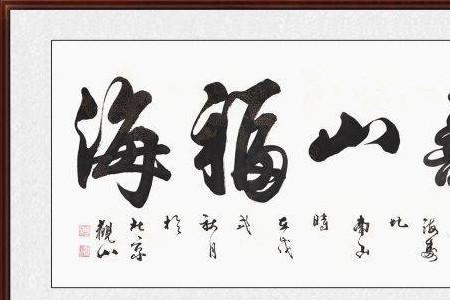 山福海
海壽
比
南山
時
在戊
戌
秋月
於
北京
觀山